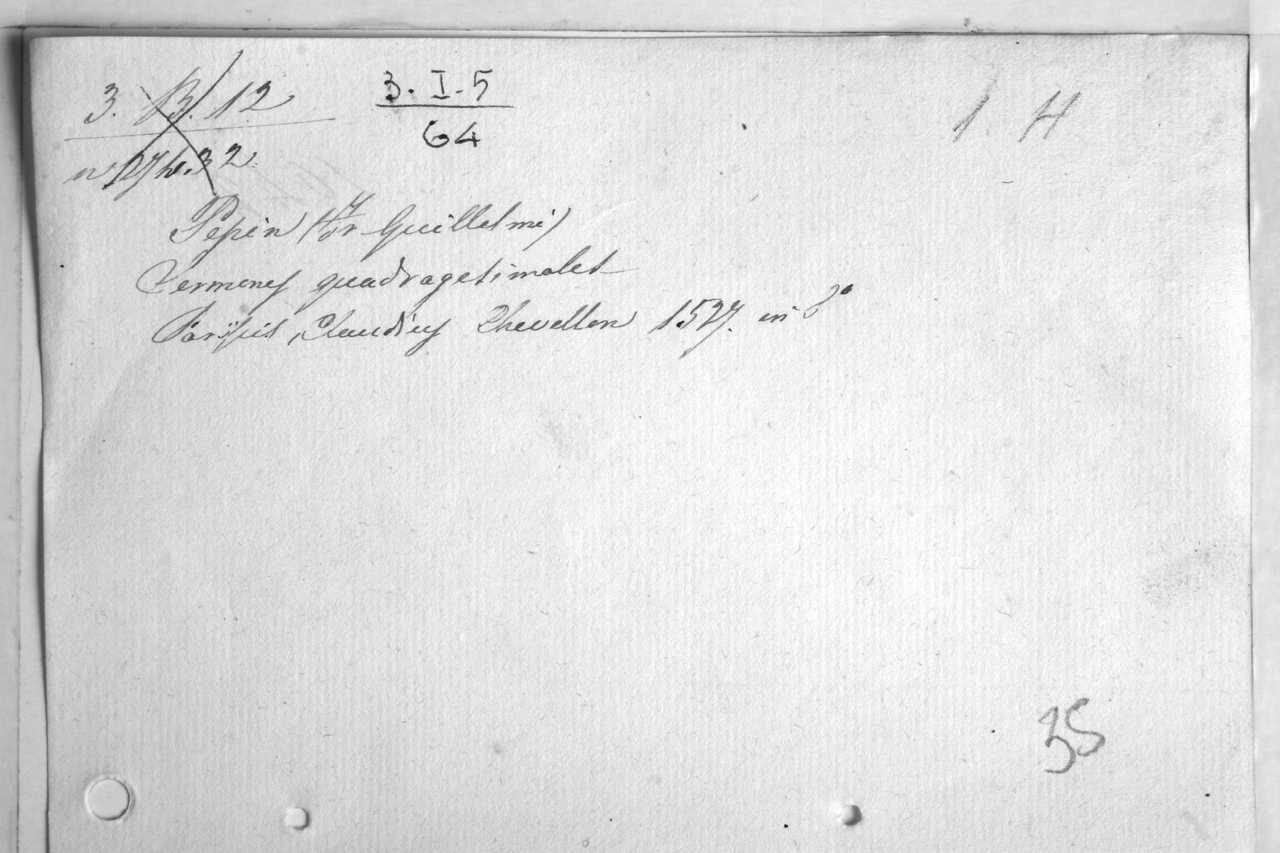 3. B. 12
3. I. 5
64
1 H
Pepin (Guillelmi)
Sermones quadragesimales
Parisiis, Claudius Chevellon 1527. in 8º
35